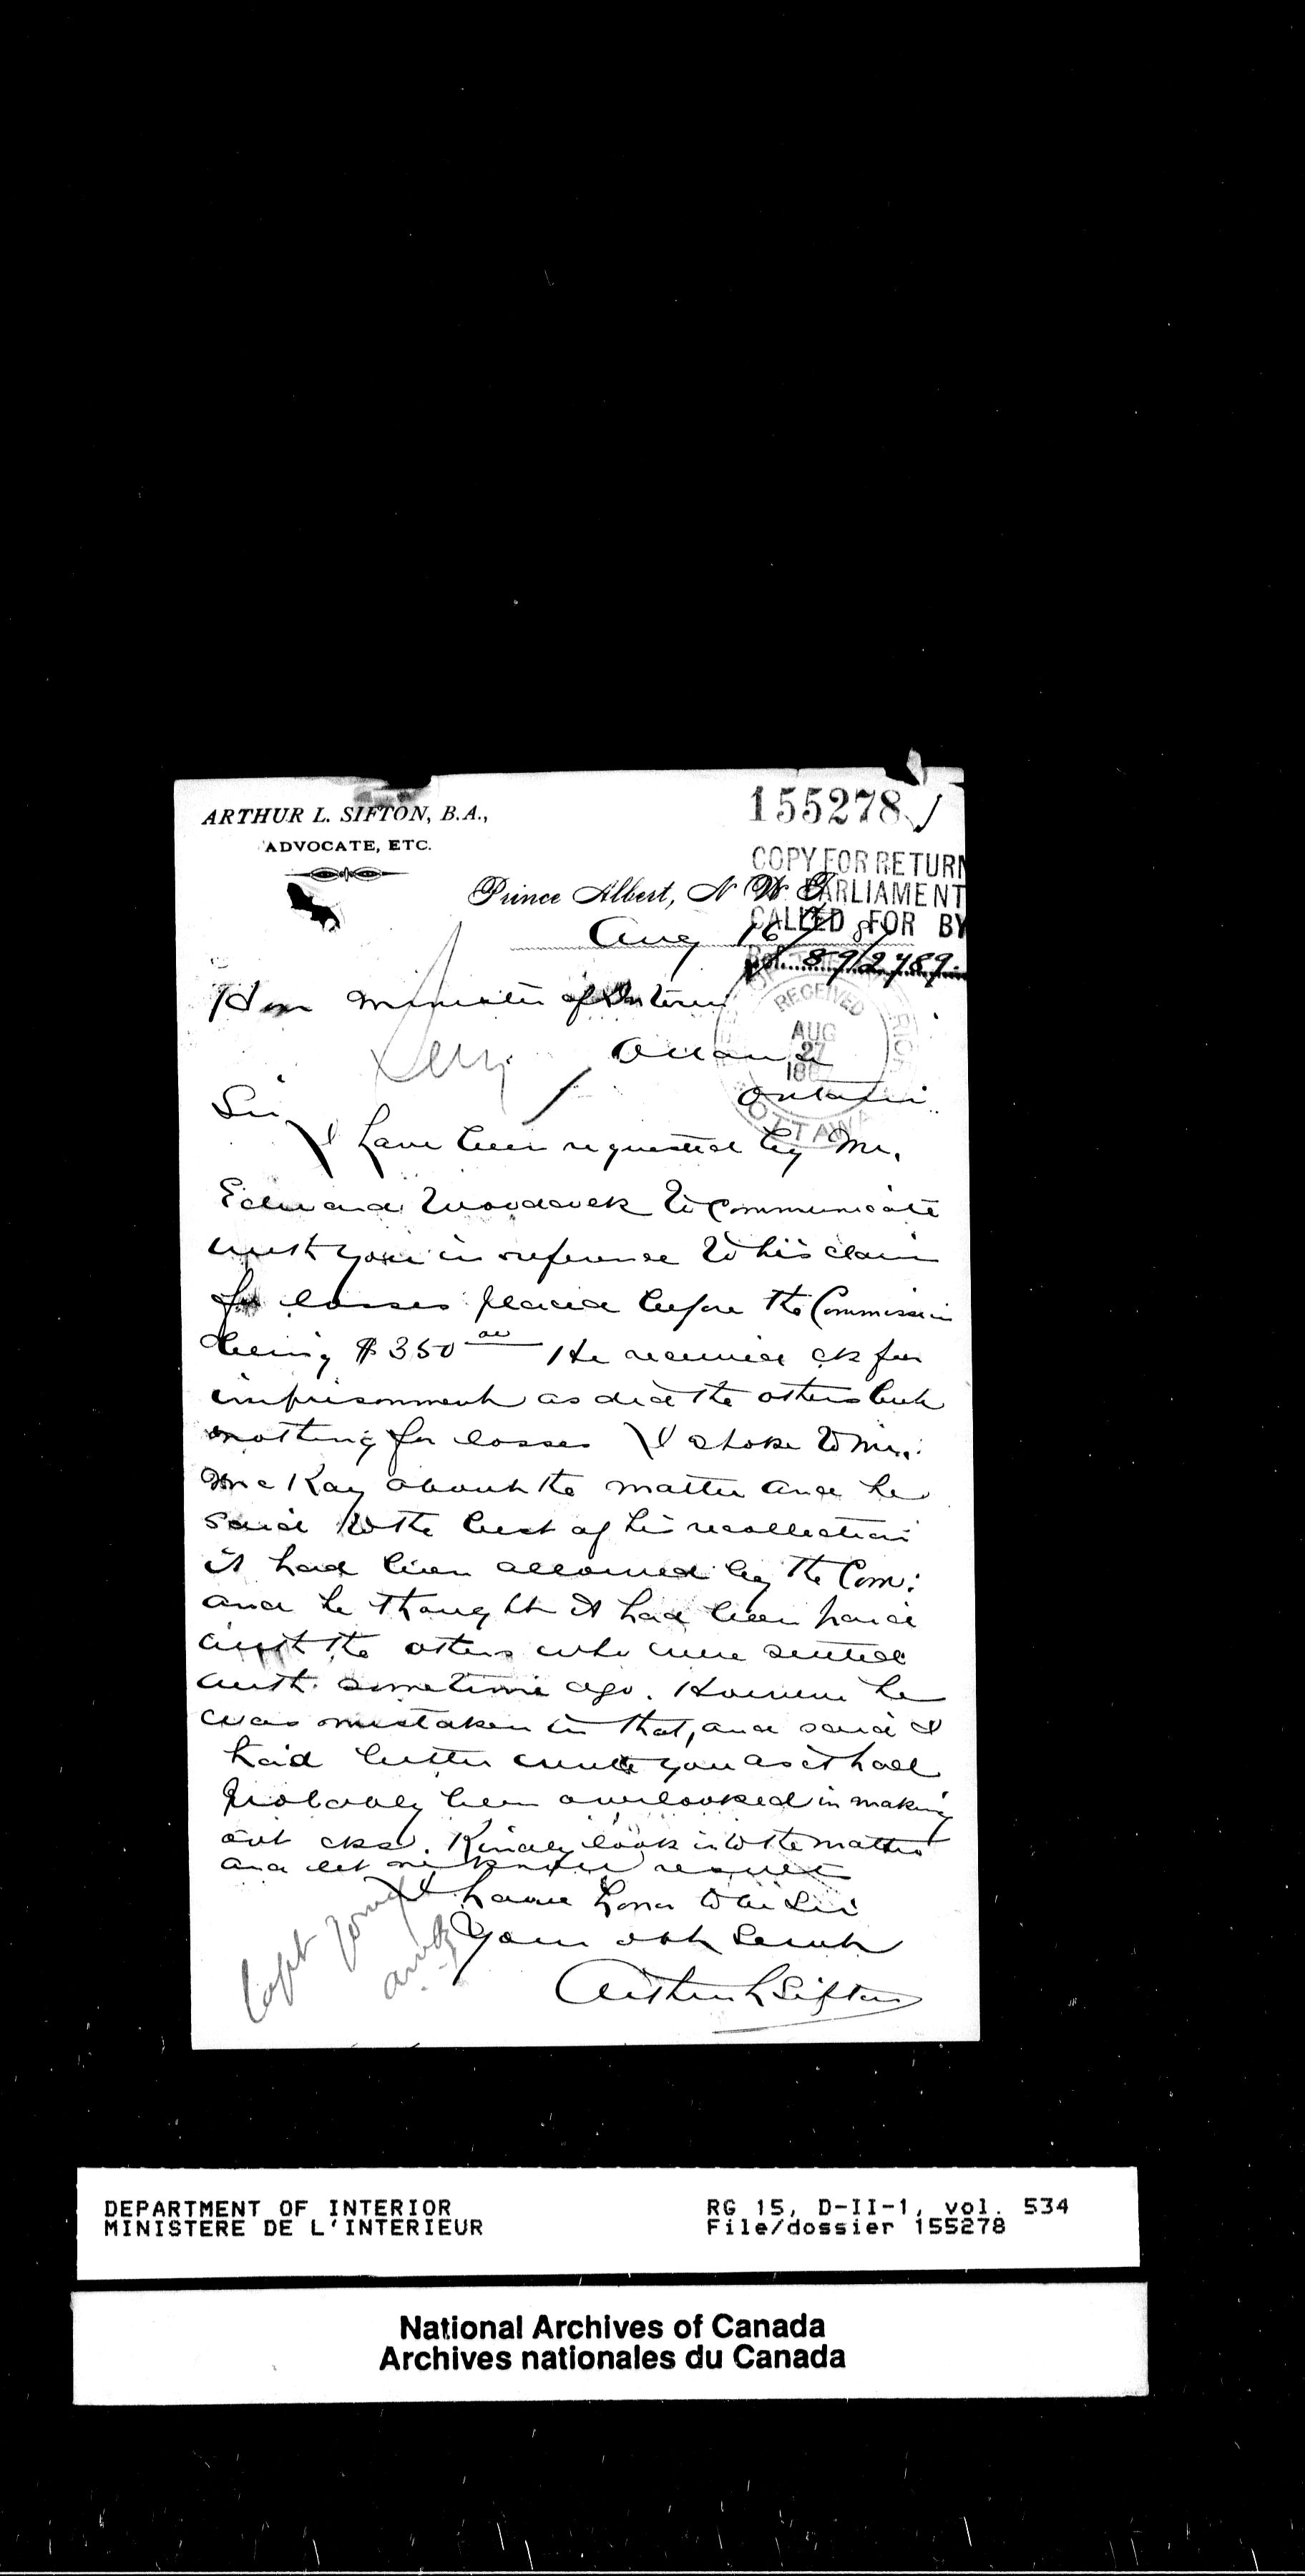 ARTHUR L. SIFTON, B.A.,
ADVOCATE, ETC.
155278
COPY FOR RETURN
PARLIAMENT
CALLED FOR BY
Prince Albert, N. W. T.
Aug 16 / 87
89/2489.
RECEIVED
AUG
27
1887
OTTAWA
Hon Minister of Interior
Ottawa
Ontario
Sir
I have been requested by Mr.
Edward Woodcock to communicate
with you in reference to his claim
for losses placed before the Commission
being $350 00 He received ck for
imprisonment as did the others but
nothing for losses I spoke to Mr.
McKay about the matter and he
said to the best of his recollection
it had been allowed by the Com:
and he thought it had been paid
with the others who were settled
with sometime ago. However he
was mistaken in that, and said I
had better write you as it had
probably been overlooked in making
out cks. Kindly look into the matter
and let me know result
I have honor to be Sir
Your obt Servt
Arthur L Sifton
Capt
DEPARTMENT OF INTERIOR
MINISTERE DE L'INTERIEUR
RG 15, D-II-1, vol. 534
File/dossier 155278
National Archives of Canada
Archives nationales du Canada